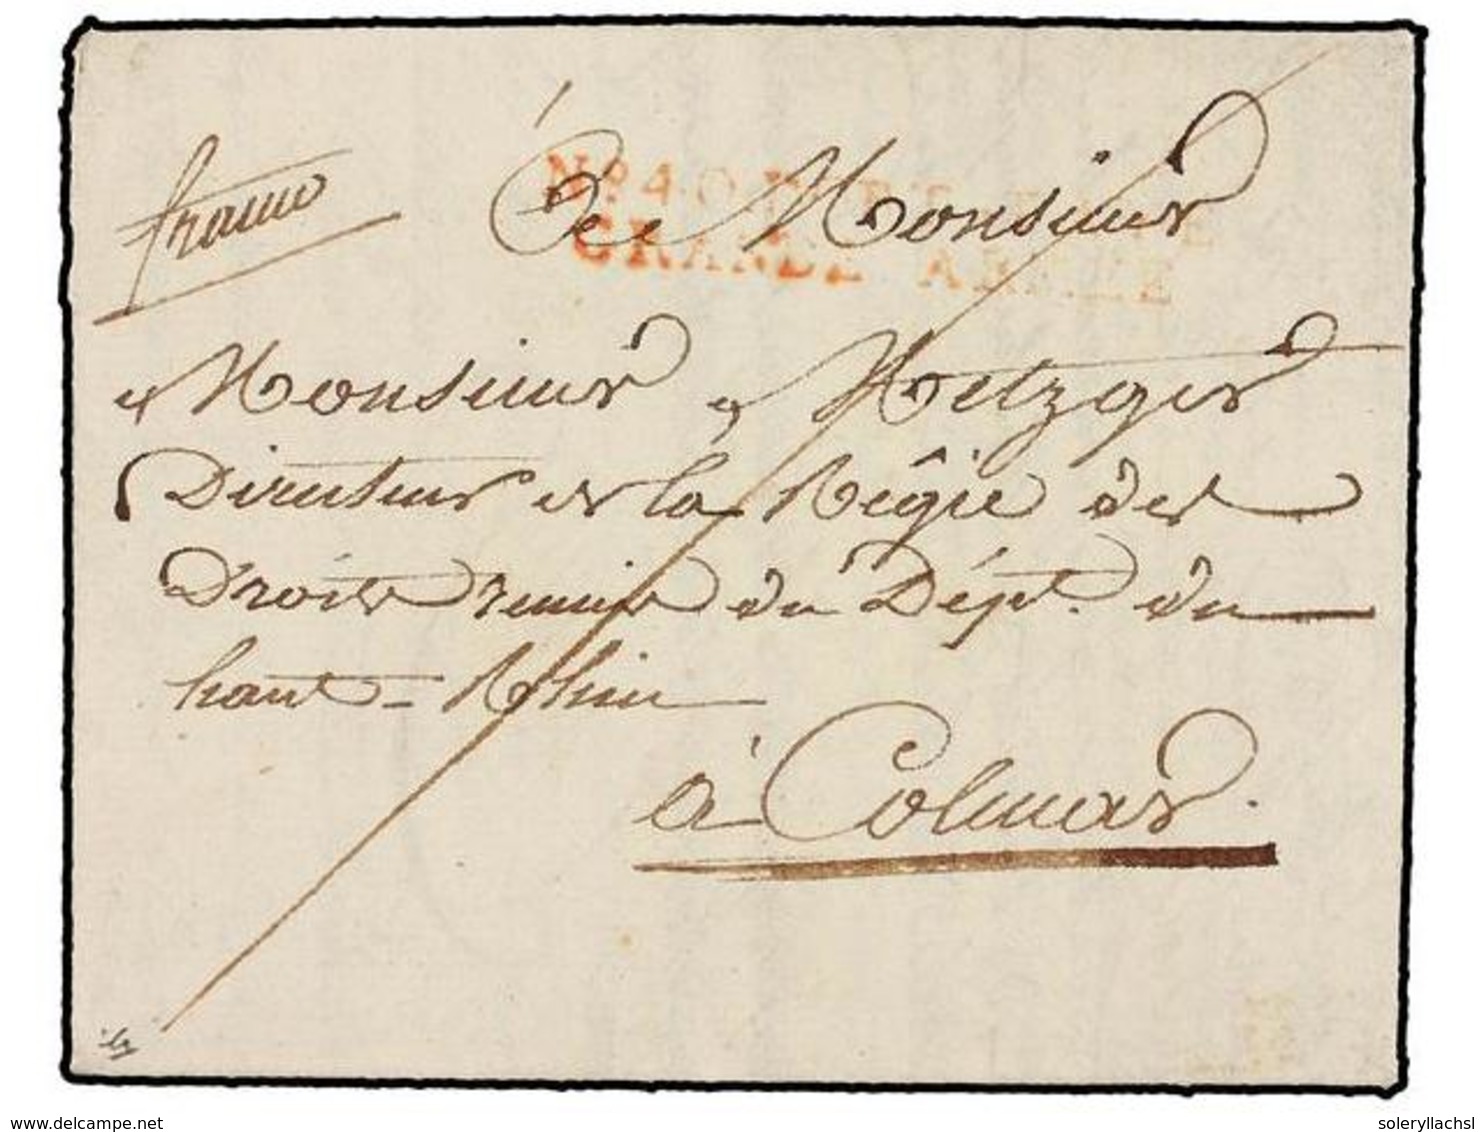 franco
À Monsieur
Nº. 40
GRANDE ARMÉE
Monsieur Metzger
Directeur de la Régie des
Droits réunis du Dépt. du
haut-Rhin
à Colmar.
delcampe.net
soleryllachsl